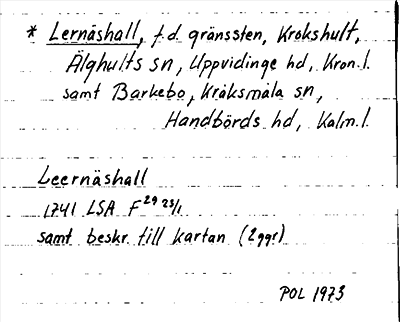 * Lernäshall, f.d. gränssten, Krokshult,
Älghults sn, Uppvidinge hd, Kron.l.
samt Barkebo, Kråksmåla sn,
Handbörds hd, Kalm.l.
Leernäshall
1741 LSA F 29 23/1
samt beskr. till kartan (2ggr)
POL 1973